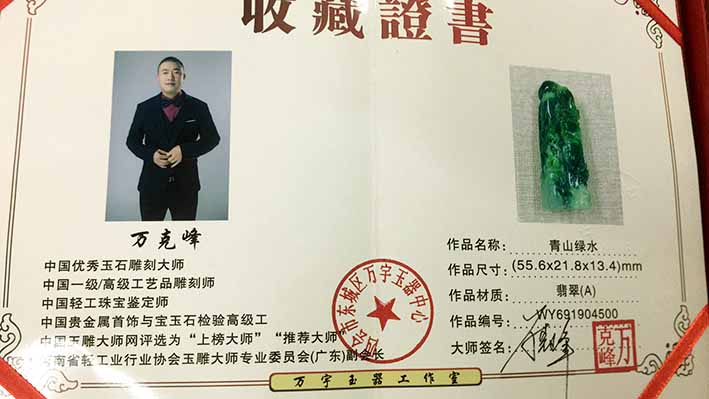 收藏證書
万克峰
中国优秀玉石雕刻大师
中国一级/高级工艺品雕刻师
中国轻工珠宝鉴定师
中国贵金属首饰与宝玉石检验高级工
中国玉雕大师网评选为“上榜大师”“推荐大师”
河南省轻工业行业协会玉雕大师专业委员会(广东)副会长
四会市东城区万宇玉器中心
作品名称: 青山绿水
作品尺寸: (55.6x21.8x13.4)mm
作品材质: 翡翠(A)
作品编号: WY691904500
大师签名: 万克峰
万克峰
万宇玉器工作室